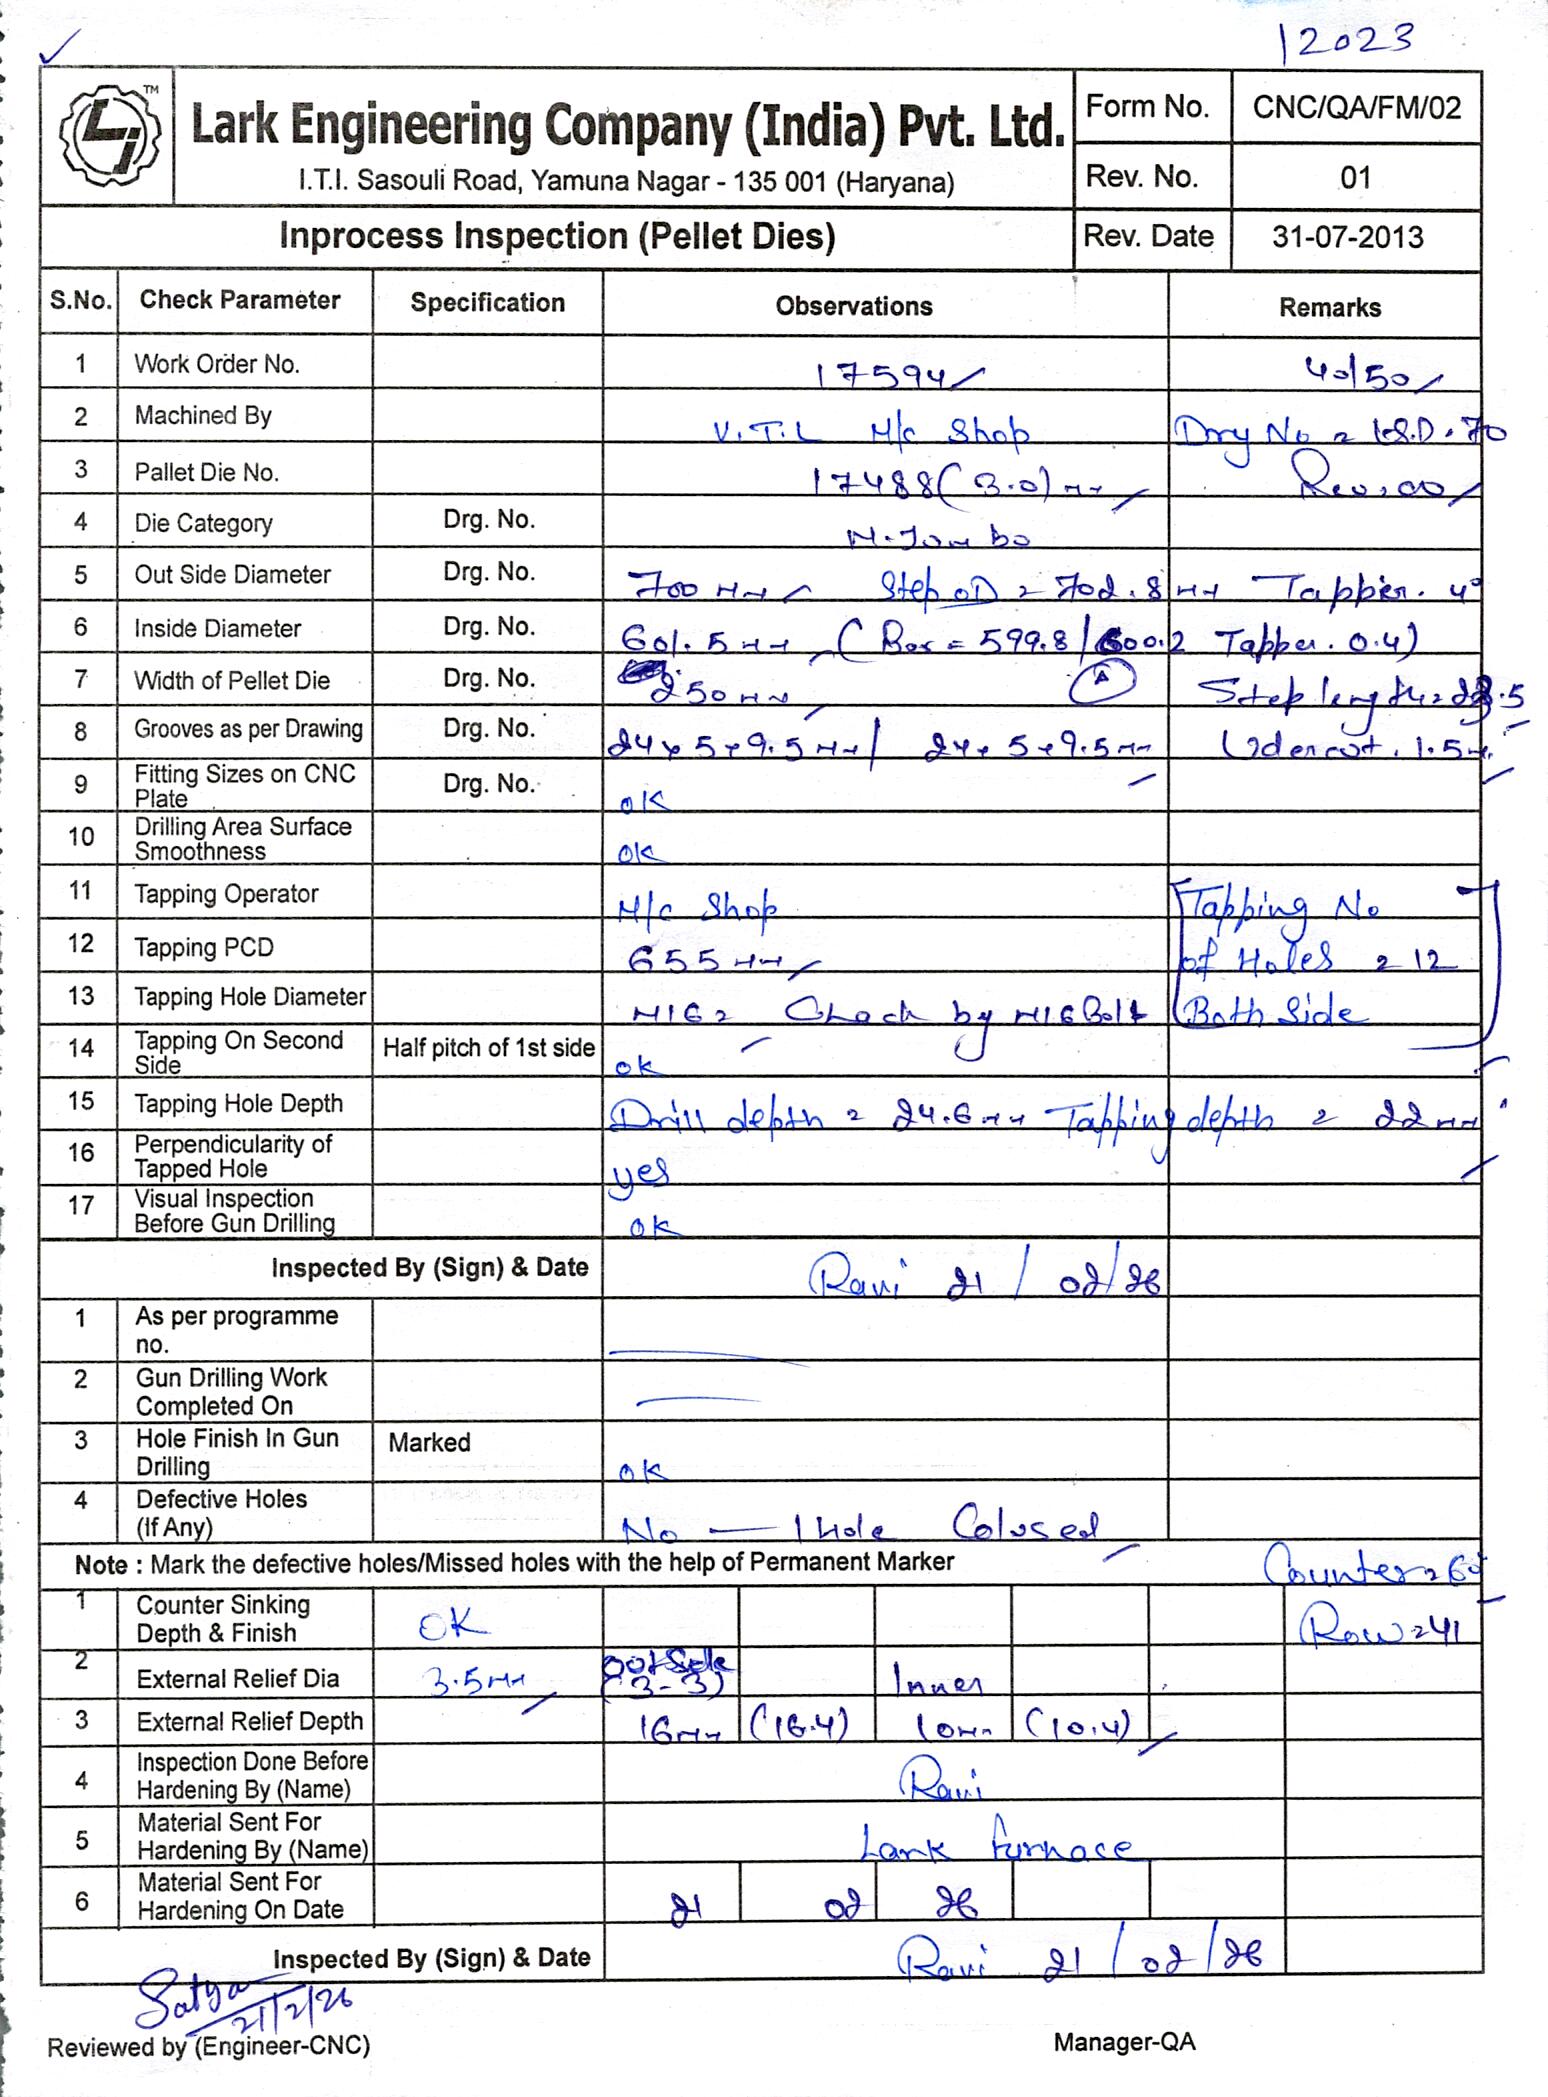 12023
TM
Lark Engineering Company (India) Pvt. Ltd.
I.T.I. Sasouli Road, Yamuna Nagar - 135 001 (Haryana)
Form No. CNC/QA/FM/02
Rev. No. 01
Inprocess Inspection (Pellet Dies) Rev. Date 31-07-2013
S.No. Check Parameter Specification Observations Remarks
1 Work Order No. 17594 40/50
2 Machined By V.T.L M/c Shop Drg No = I.S.D. 70
3 Pallet Die No. 17488 (3.0) mm Rev. 00
4 Die Category Drg. No. M. Jumbo
5 Out Side Diameter Drg. No. 700 mm Step OD = 702.8 mm Tapper. 4°
6 Inside Diameter Drg. No. 601.5 mm (Bor = 599.8/600.2 Tapper. 0.4)
7 Width of Pellet Die Drg. No. 250 mm A Step length = 23.5
8 Grooves as per Drawing Drg. No. 24 x 5 x 9.5 mm / 24 x 5 x 9.5 mm Udercut. 1.5 m.
9 Fitting Sizes on CNC Plate Drg. No. OK
10 Drilling Area Surface Smoothness OK
11 Tapping Operator M/c Shop [Tapping No
12 Tapping PCD 655 mm of Holes = 12
13 Tapping Hole Diameter M16 = Chack by M16 Bolt Both Side]
14 Tapping On Second Side Half pitch of 1st side OK
15 Tapping Hole Depth Drill depth = 24.6 mm Tapping depth = 22 mm
16 Perpendicularity of Tapped Hole yes
17 Visual Inspection Before Gun Drilling OK
Inspected By (Sign) & Date Ravi 21/02/26
1 As per programme no.
2 Gun Drilling Work Completed On
3 Hole Finish In Gun Drilling Marked OK
4 Defective Holes (If Any) No — 1 Hole Colused
Note : Mark the defective holes/Missed holes with the help of Permanent Marker Counter = 60°
1 Counter Sinking Depth & Finish OK Row = 41
2 External Relief Dia 3.5 mm Out Side (3-3) Inner
3 External Relief Depth 16 mm (16.4) 10 mm (10.4)
4 Inspection Done Before Hardening By (Name) Ravi
5 Material Sent For Hardening By (Name) Lark furnace
6 Material Sent For Hardening On Date 21 02 26
Inspected By (Sign) & Date Ravi 21/02/26
Satya
21/2/26
Reviewed by (Engineer-CNC) Manager-QA